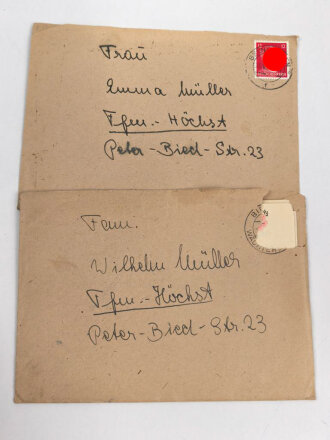 Frau
Emma Müller
Ffm.-Höchst
Peter-Bied-Str. 23
Fam.
Wilhelm Müller
Ffm.-Höchst
Peter-Bied-Str. 23